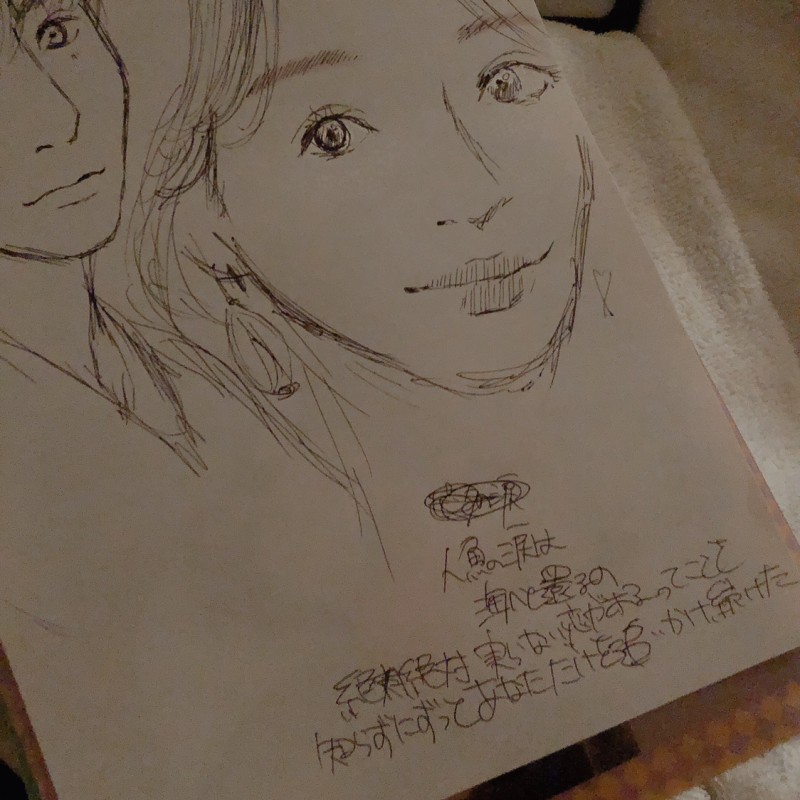 人魚の涙は
海へと還るの
絶対絶対 実らない恋があるってことを
知らずにずっとあなただけを追いかけ続けた